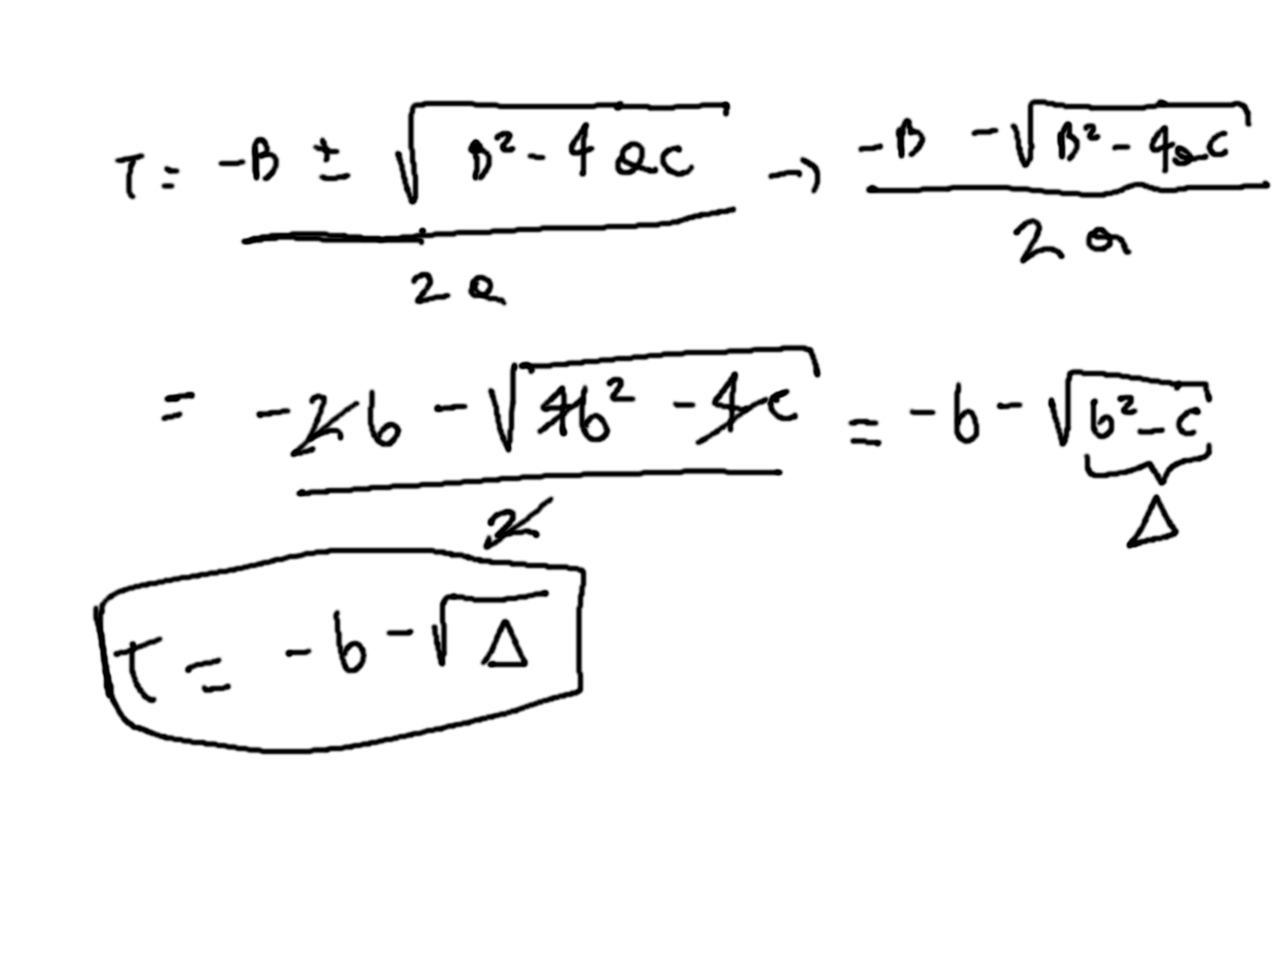 T = (-B ± √(B² - 4ac)) / 2a → (-B - √(B² - 4ac)) / 2a
= (-2b - √(4b² - 4c)) / 2 = -b - √(b² - c)
Δ
T = -b - √Δ